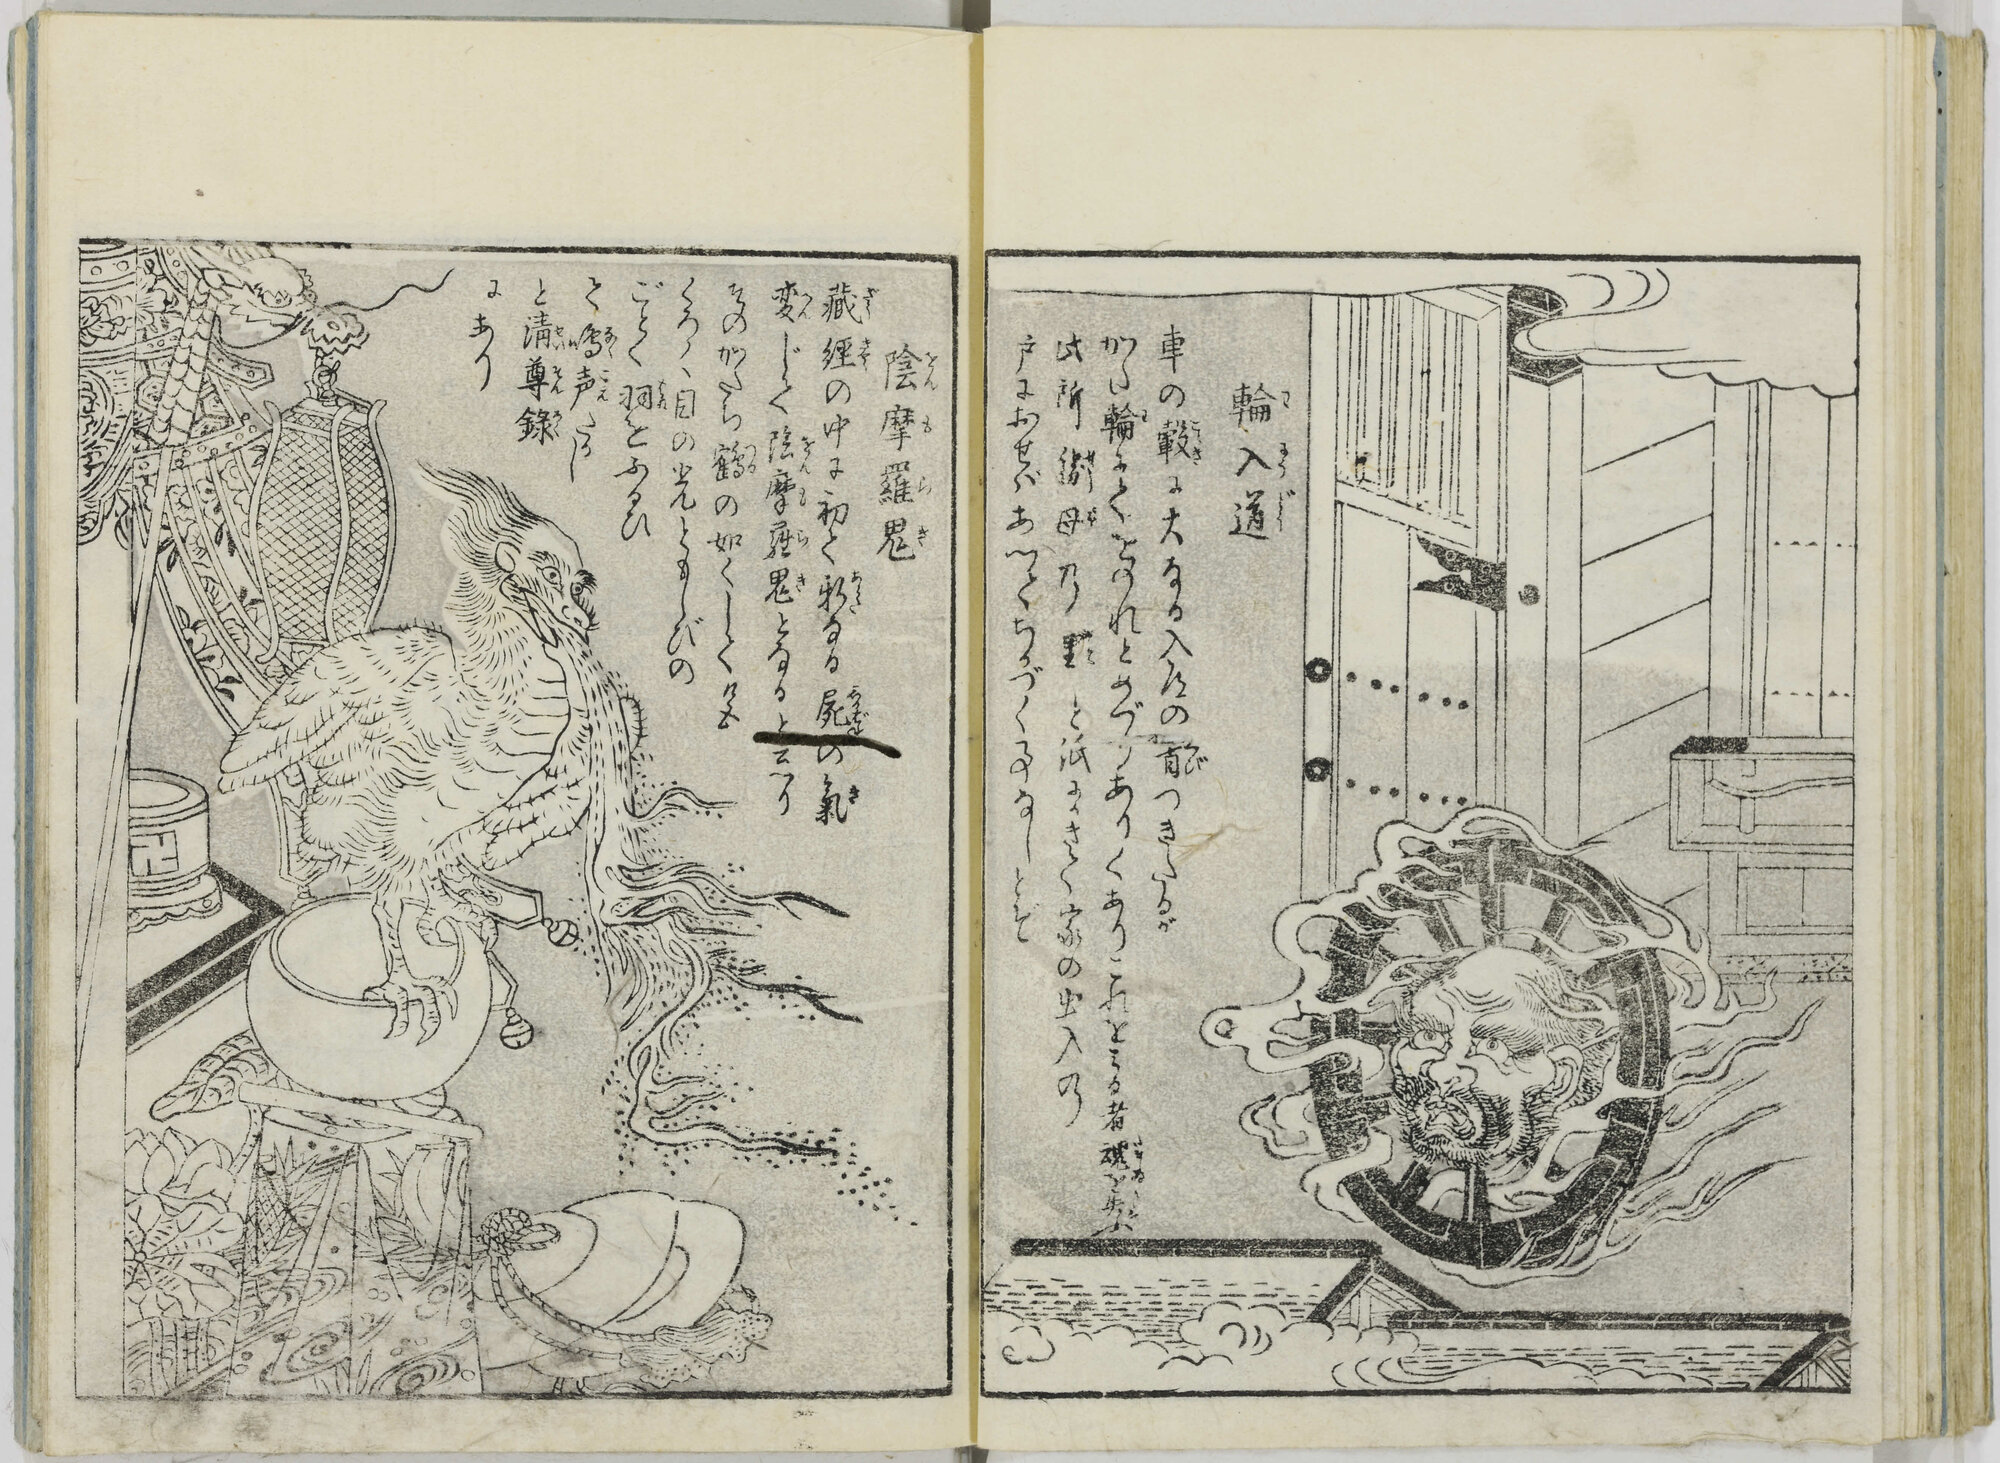 輪入道
車の轂に大なる入道の首つきたるが
かた輪にてをのれとめぐりありくありこれをみる者魂を失ふ
此所勝母の里と紙にかきて家の出入の
戸におせばあへてちかづく事なしとぞ
陰摩羅鬼
蔵経の中に初て新なる屍の気
変じて陰摩羅鬼となると云へり
そのかたち鶴の如くして色
くろく目の光ともしびの
ごとく羽をふるひ
て鳴声たかし
と清尊録
にあり